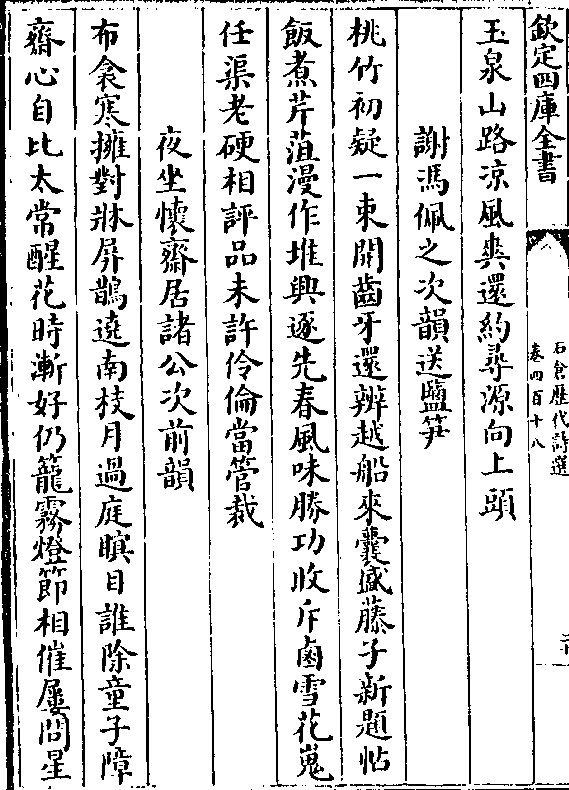 欽定四庫全書
石倉歷代詩選
卷四百十八
玉泉山路凉風爽還約尋源向上頭
謝馮佩之次韻送鹽笋
桃竹初疑一束開齒牙還辨越船來囊盛藤子新題帖
飯煮芹葅漫作堆興逐先春風味勝功收斥鹵雪花嵬
任渠老硬相評品未許伶倫當管裁
夜坐懷齋居諸公次前韻
布衾寒擁對牀屛鵲遶南枝月過庭瞑目誰除童子障
齋心自比太常醒花時漸好仍籠霧燈節相催屢問星